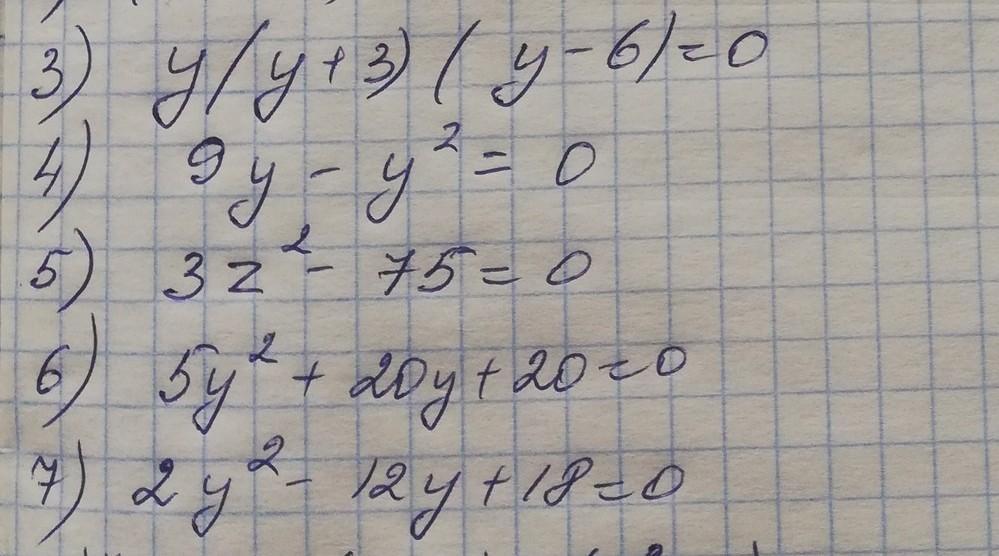 3) y(y+3)(y-6)=0
4) 9y - y² = 0
5) 3z² - 75 = 0
6) 5y² + 20y + 20 = 0
7) 2y² - 12y + 18 = 0